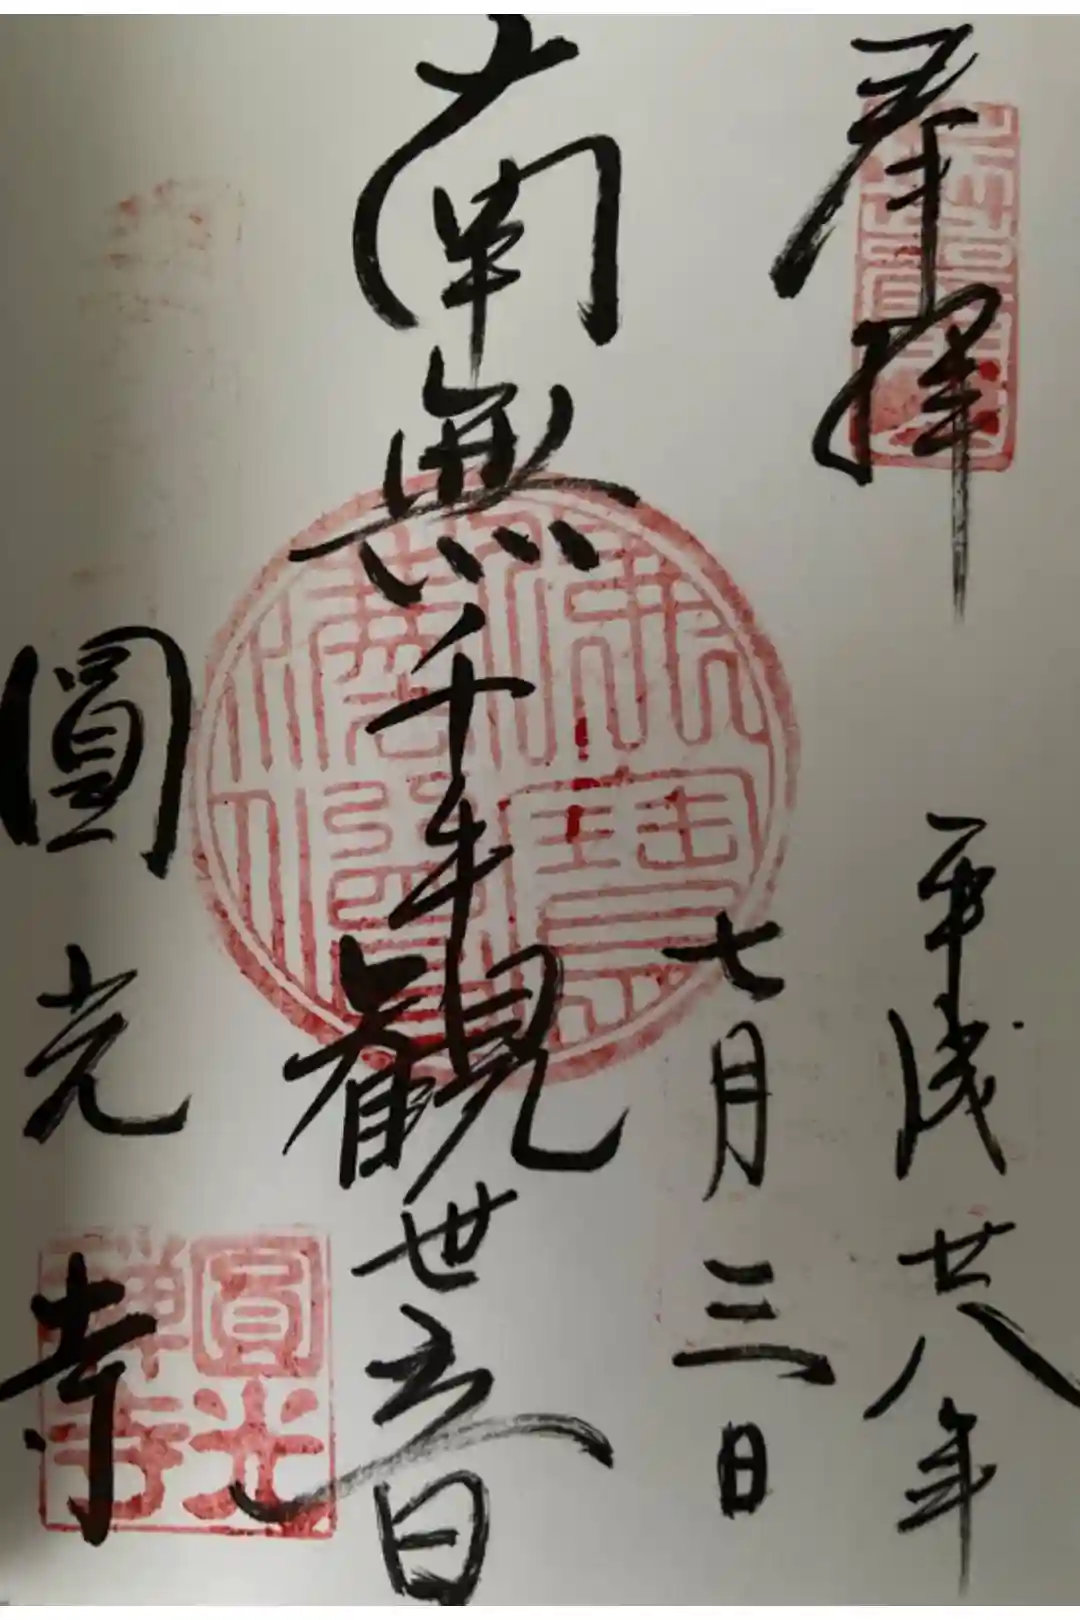 奉拝
平成廿八年
七月三日
南無千手観世音
圓光寺
佛法僧寳
圓光禅寺